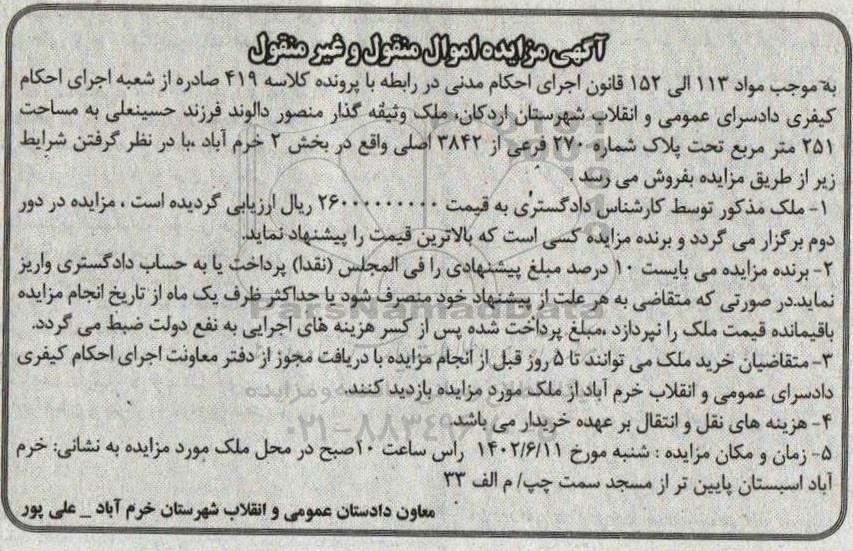 آگهی مزایده اموال منقول و غیر منقول
به موجب مواد ۱۱۳ الی ۱۵۲ قانون اجرای احکام مدنی در رابطه با پرونده کلاسه ۴۱۹ صادره از شعبه اجرای احکام
کیفری دادسرای عمومی و انقلاب شهرستان اردکان، ملک وثیقه گذار منصور دالوند فرزند حسینعلی به مساحت
۲۵۱ متر مربع تحت پلاک شماره ۲۷۰ فرعی از ۳۸۴۲ اصلی واقع در بخش ۲ خرم آباد ،با در نظر گرفتن شرایط
زیر از طریق مزایده بفروش می رسد ،
۱- ملک مذکور توسط کارشناس دادگستری به قیمت ۲۶۰۰۰۰۰۰۰۰۰ ریال ارزیابی گردیده است ، مزایده در دور
دوم برگزار می گردد و برنده مزایده کسی است که بالاترین قیمت را پیشنهاد نماید.
۲- برنده مزایده می بایست ۱۰ درصد مبلغ پیشنهادی را فی المجلس (نقدا) پرداخت یا به حساب دادگستری واریز
نماید.در صورتی که متقاضی به هر علت از پیشنهاد خود منصرف شود یا حداکثر ظرف یک ماه از تاریخ انجام مزایده
باقیمانده قیمت ملک را نپردازد ،مبلغ پرداخت شده پس از کسر هزینه های اجرایی به نفع دولت ضبط می گردد.
۳- متقاضیان خرید ملک می توانند تا ۵ روز قبل از انجام مزایده با دریافت مجوز از دفتر معاونت اجرای احکام کیفری
دادسرای عمومی و انقلاب خرم آباد از ملک مورد مزایده بازدید کنند.
۴- هزینه های نقل و انتقال بر عهده خریدار می باشد.
۵- زمان و مکان مزایده : شنبه مورخ ۱۴۰۲/۶/۱۱ راس ساعت ۱۰صبح در محل ملک مورد مزایده به نشانی: خرم
آباد اسبستان پایین تر از مسجد سمت چپ/ م الف ۳۳
معاون دادستان عمومی و انقلاب شهرستان خرم آباد _ علی پور
ParsNamadData